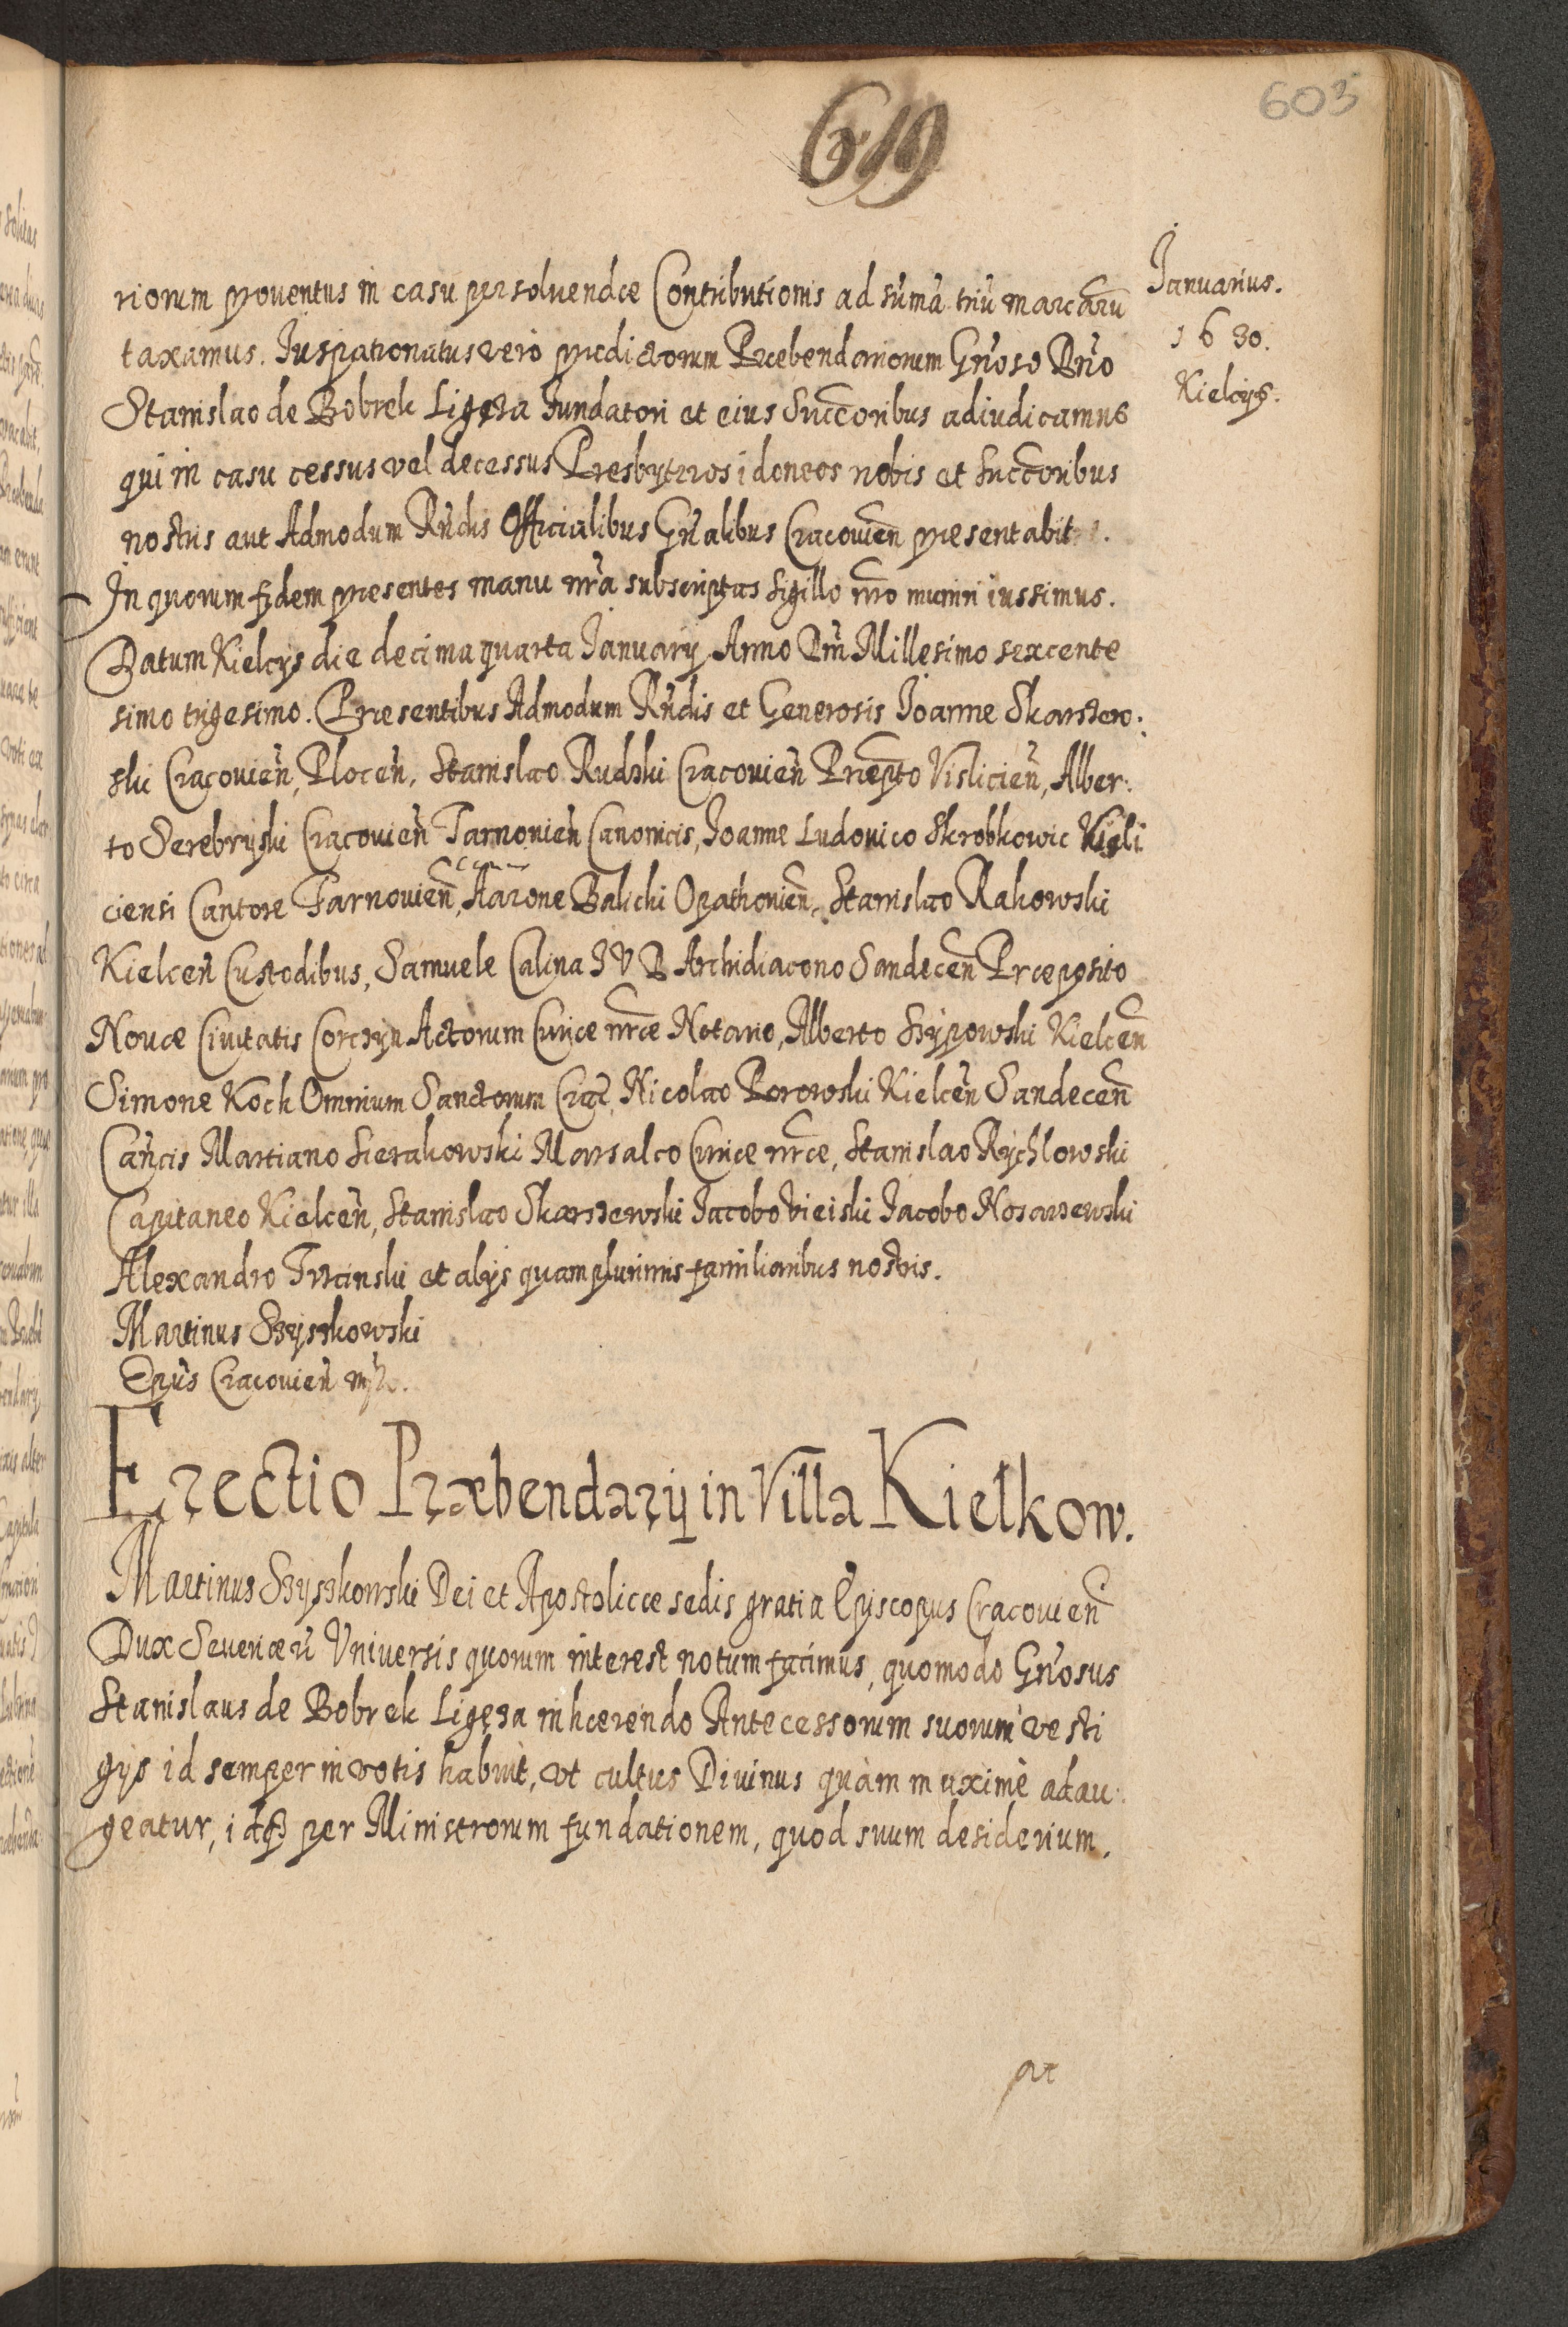 603
619
Januarius.
1630.
Kielcijs.
riorum prouentus in casu persoluendæ Contributionis ad sumã triũ marcarũ
taxamus. Juspationatus vero prædictorum Præbendariorum Gñoso Dño
Stanislao de Bobrek Ligęza Fundatori et eius Succoribus adiudicamus
qui in casu cessus vel decessus Presbyteros idoneos nobis et Succoribus
nostris aut Admodum Rñdis Officialibus Gñalibus Cracouieñ præsentabit.
In quorum fidem præsentes manu nr̃a subscriptas Sigillo nr̃o muniri iussimus.
Datum Kielcijs die decima quarta Januarij Anno Dñi Millesimo sexcente
simo trigesimo. Præsentibus Admodum Rñdis et Generosis Joanne Skarszew:
ski Cracouieñ, Ploceñ, Stanislao Rudzki Cracouieñ Præpto Visliciеñ, Alber:
to Serebryski Cracouieñ Tarnouieñ Canonicis, Joanne Ludouico Skrobkowic Kieli
ciensi Cantore Tarnouieñ, Aarone Balicki Opathouieñ, Stanislao Rakowski
Kielceñ Custodibus, Samuele Calina J V D Archidiacono Sandeceñ Præposito
Nouæ Ciuitatis Corczyn Actorum Curiæ nr̃æ Notario, Alberto Szypowski Kielceñ
Simone Koch Omnium Sanctorum Crac, Nicolao Borowski Kielceñ Sandeceñ
Cañcis Martiano Sierakowski Marsalco Curiæ nr̃æ, Stanislao Rychlowski
Capitaneo Kielceñ, Stanislao Skarszewski Jacobo Jacobo Nosarzewski
Alexandro Trzcinski et alijs quamplurimis familiaribus nostris.
Martinus Szyszkowski
Ep̃us Cracouieñ mp.
Erectio Præbendarij in Villa Kiełkow.
Martinus Szyszkowski Dei et Apostolicæ sedis gratia Episcopus Cracouieñ
Dux Seueriæ Vniuersis quorum interest notum facimus, quomodo Gñosus
Stanislaus de Bobrek Ligęza inhærendo Antecessorum suorum vesti
gijs id semper in votis habuit, vt cultus Diuinus quàm maximè adau:
geatur, idq3 per Ministrorum fundationem, quod suum desiderium.
at